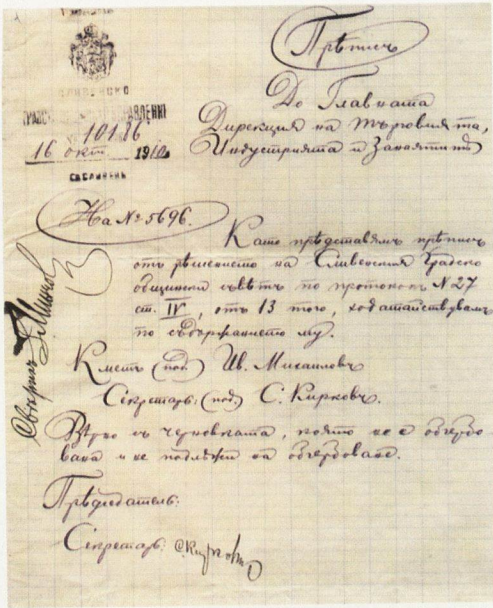 Прѣписъ
СЛИВЕНСКО
ГРАДСКО УПРАВЛЕНИЕ
10186
16 окт 1910
гр. СЛИВЕНЪ
До Главната
Дирекция на търговията,
Индустрията и Занаятитѣ
На № 5696.
Като прѣдставямъ прѣписъ
отъ рѣшението на Сливенския Градско
общински съвѣтъ по протоколъ № 27
ст. IV, отъ 13 того, ходатайствувамъ
по съдържанието му.
Кметъ (под.) Ив. Михайловъ
Секретарь: (под) С. Кирковъ.
Вѣрно съ черновката, която не е обгербо-
вана и не подлѣжи на обгербоване.
Прѣдседатель:
Секретарь: С. Кирковъ